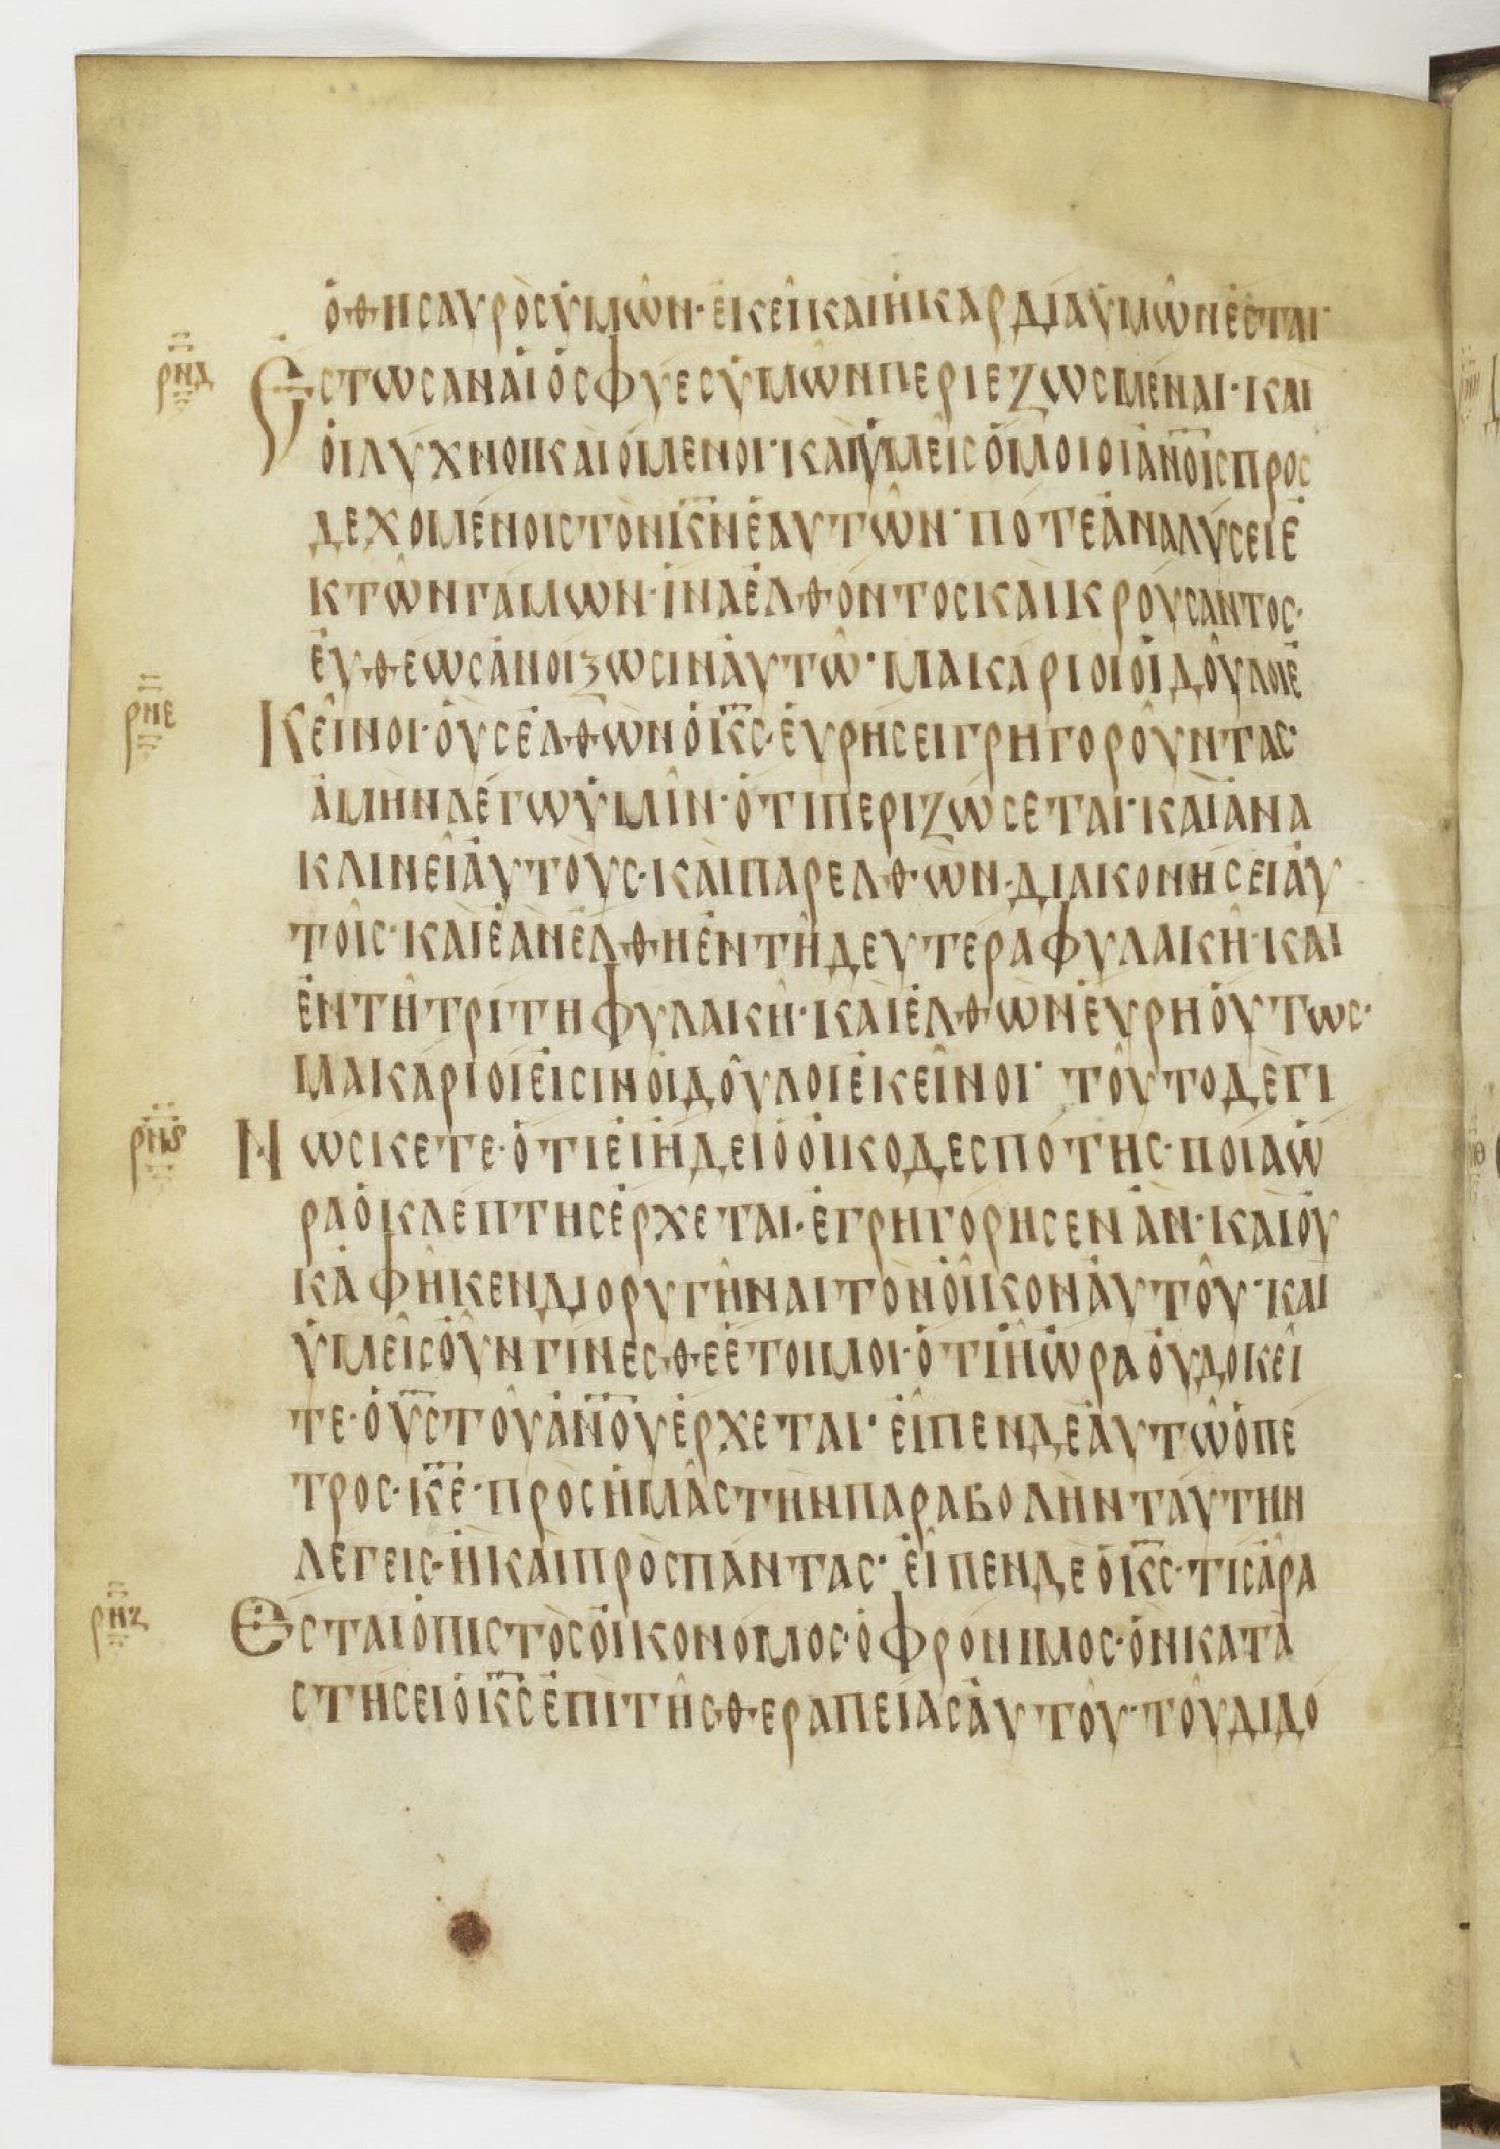 ὁ θησαυρὸς ὑμῶν· ἐκεῖ καὶ ἡ καρδία ὑμῶν ἔσται·
ρνδ
Ἔστωσαν αἱ ὀσφυες ὑμῶν περιεζωσμέναι· καὶ
ὁι λύχνοι καιόμενοι· καὶ ὑμεῖς ὅμοιοι ἀν̅ο̅ις προς
δεχομένοις τὸν κ̅ν̅ ἑαυτῶν· πότε ἀναλύσει ἐ
κ τῶν γάμων· ἵνα ἐλθόντος καὶ κρούσαντος·
ἐυθέως ἀνοίξωσιν ἀυτῶ· μακάριοι ὁι δοῦλοι ἐ
ρνε
Κεῖνοι· ὁὺς ἐλθὼν ὁ κ̅ς̅· ἑυρήσει γρηγοροῦντας·
ἀμὴν λέγω ὑμῖν· ὅτι περιζώσεται· καὶ ἀνα
κλινεῖ ἀυτοὺς· καὶ παρελθὼν· διακονήσει ἀυ
τοῖς· καὶ ἐὰν ἔλθη ἐν τῆ δευτέρα φυλακῆ· καὶ
ἐν τῆ τρίτη φυλακῆ· καὶ ἐλθὼν ἕυρη ὅυτως·
μακάριοί ἐισιν ὁι δοῦλοι ἐκεῖνοι· τοῦτο δὲ γι
ρνϛ
Νώσκετε· ὅτι ἐι ἤδει ὁ ὀικοδεσπότης· ποία ὥ
ρα ὁ κλέπτης ἔρχεται· ἐγρηγόρησεν ἂν· καὶ ὀυ
κ ἀφῆκεν διορυγῆναι τὸν ὀῖκον ἀυτοῦ· καὶ
ὑμεῖς ὀῦν γίνεσθε ἕτοιμοι· ὅτι ἧ ὥρα ὀυ δοκεῖ
τε· ὁ υ̅ς̅ τοῦ ἀν̅ο̅υ ἔρχεται· ἐῖπεν δὲ ἀυτῶ ὁ πέ
τρος· κ̅ε̅· πρὸς ἡμᾶς τὴν παραβολὴν ταύτην
λέγεις· ἢ καὶ πρὸς πάντας· ἐῖπεν δὲ ὁ κ̅ς̅· τίς ἆρα
ρνζ
Ἐσται ὁ πιστὸς ὀικονόμος· ὁ φρόνιμος· ὃν κατα
στήσει ὁ κ̅ς̅ ἐπὶ τῆς θεραπείας ἀυτοῦ· τοῦ διδό